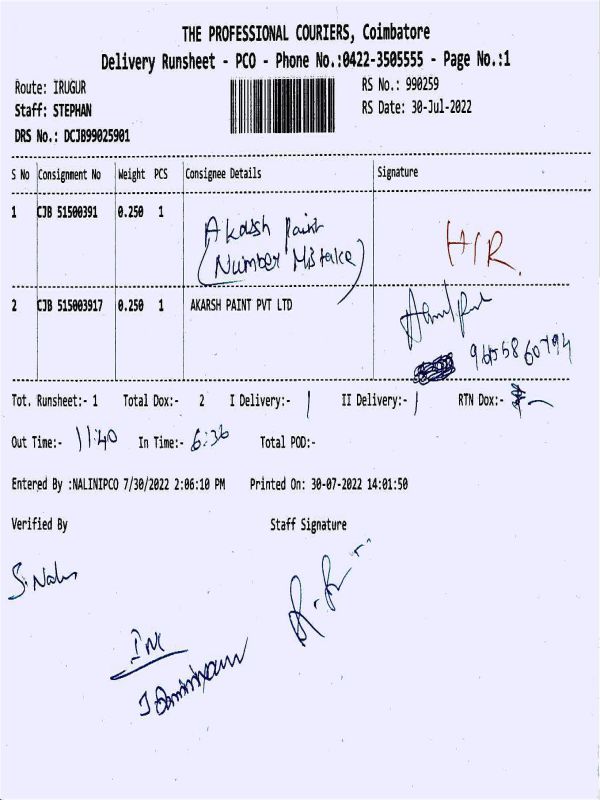 THE PROFESSIONAL COURIERS, Coimbatore
Delivery Runsheet - PCO - Phone No.:0422-3505555 - Page No.:1
Route: IRUGUR RS No.: 990259
Staff: STEPHAN RS Date: 30-Jul-2022
DRS No.: DCJB99025901
S No Consignment No Weight PCS Consignee Details Signature
1 CJB 51500391 0.250 1 Akash Paint
(Number Mistake) H/R.
2 CJB 515003917 0.250 1 AKARSH PAINT PVT LTD
Tot. Runsheet:- 1 Total Dox:- 2 I Delivery:- 1 II Delivery:- 1 RTN Dox:-
Out Time:- 11:40 In Time:- 6:36 Total POD:-
Entered By :NALINIPCO 7/30/2022 2:06:10 PM Printed On: 30-07-2022 14:01:50
Verified By Staff Signature